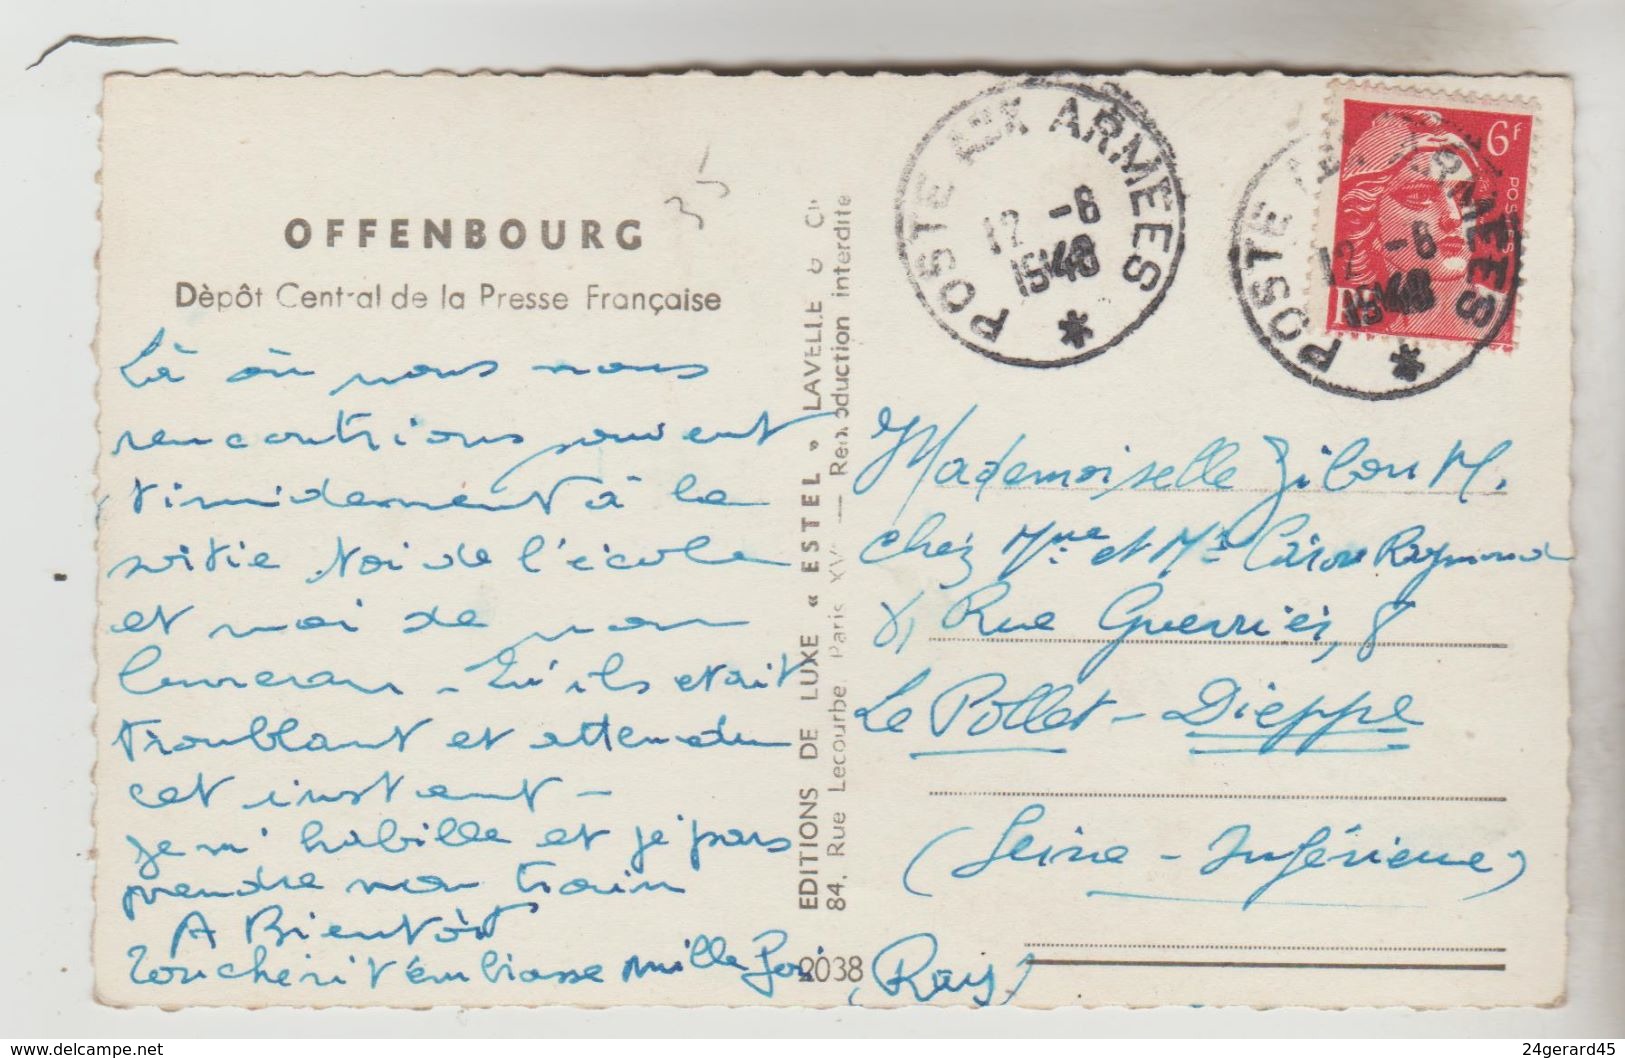 35
OFFENBOURG
Dèpôt Central de la Presse Française
Là où nous nous
rencontrions souvent
timidement à la
sortie toi de l'école
et moi de mon
bureau - Qu'ils etait
troublant et attendu
cet instant -
je m'habille et je pars
prendre mon train
A Bientôt
ton cheri t'embrasse mille fois
Ray
EDITIONS DE LUXE « ESTEL » LAVELLE & Cie
84, Rue Lecourbe Paris XVe — Reproduction interdite
2038
POSTE AUX ARMEES
12 -6
1948
POSTE AUX ARMEES
12 -6
1948
6F
POSTES
Mademoiselle M.
chez Mme et Mr Caron Raymond
8, Rue Guerrier, 8
Le Pollet - Dieppe
(Seine - Inférieure)
www.delcampe.net
24gerard45